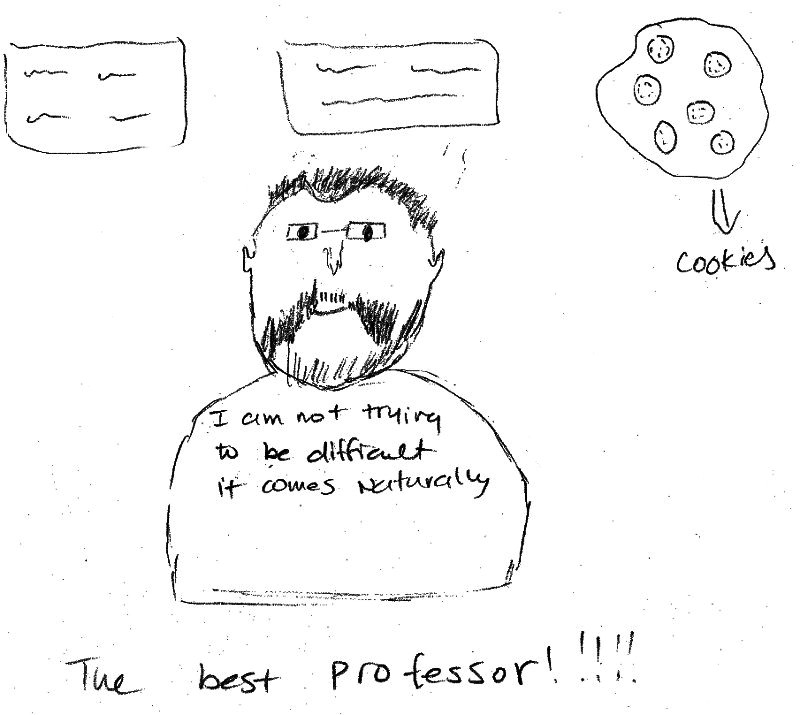 cookies
I am not trying
to be difficult
it comes Naturally
The best professor!!!!!